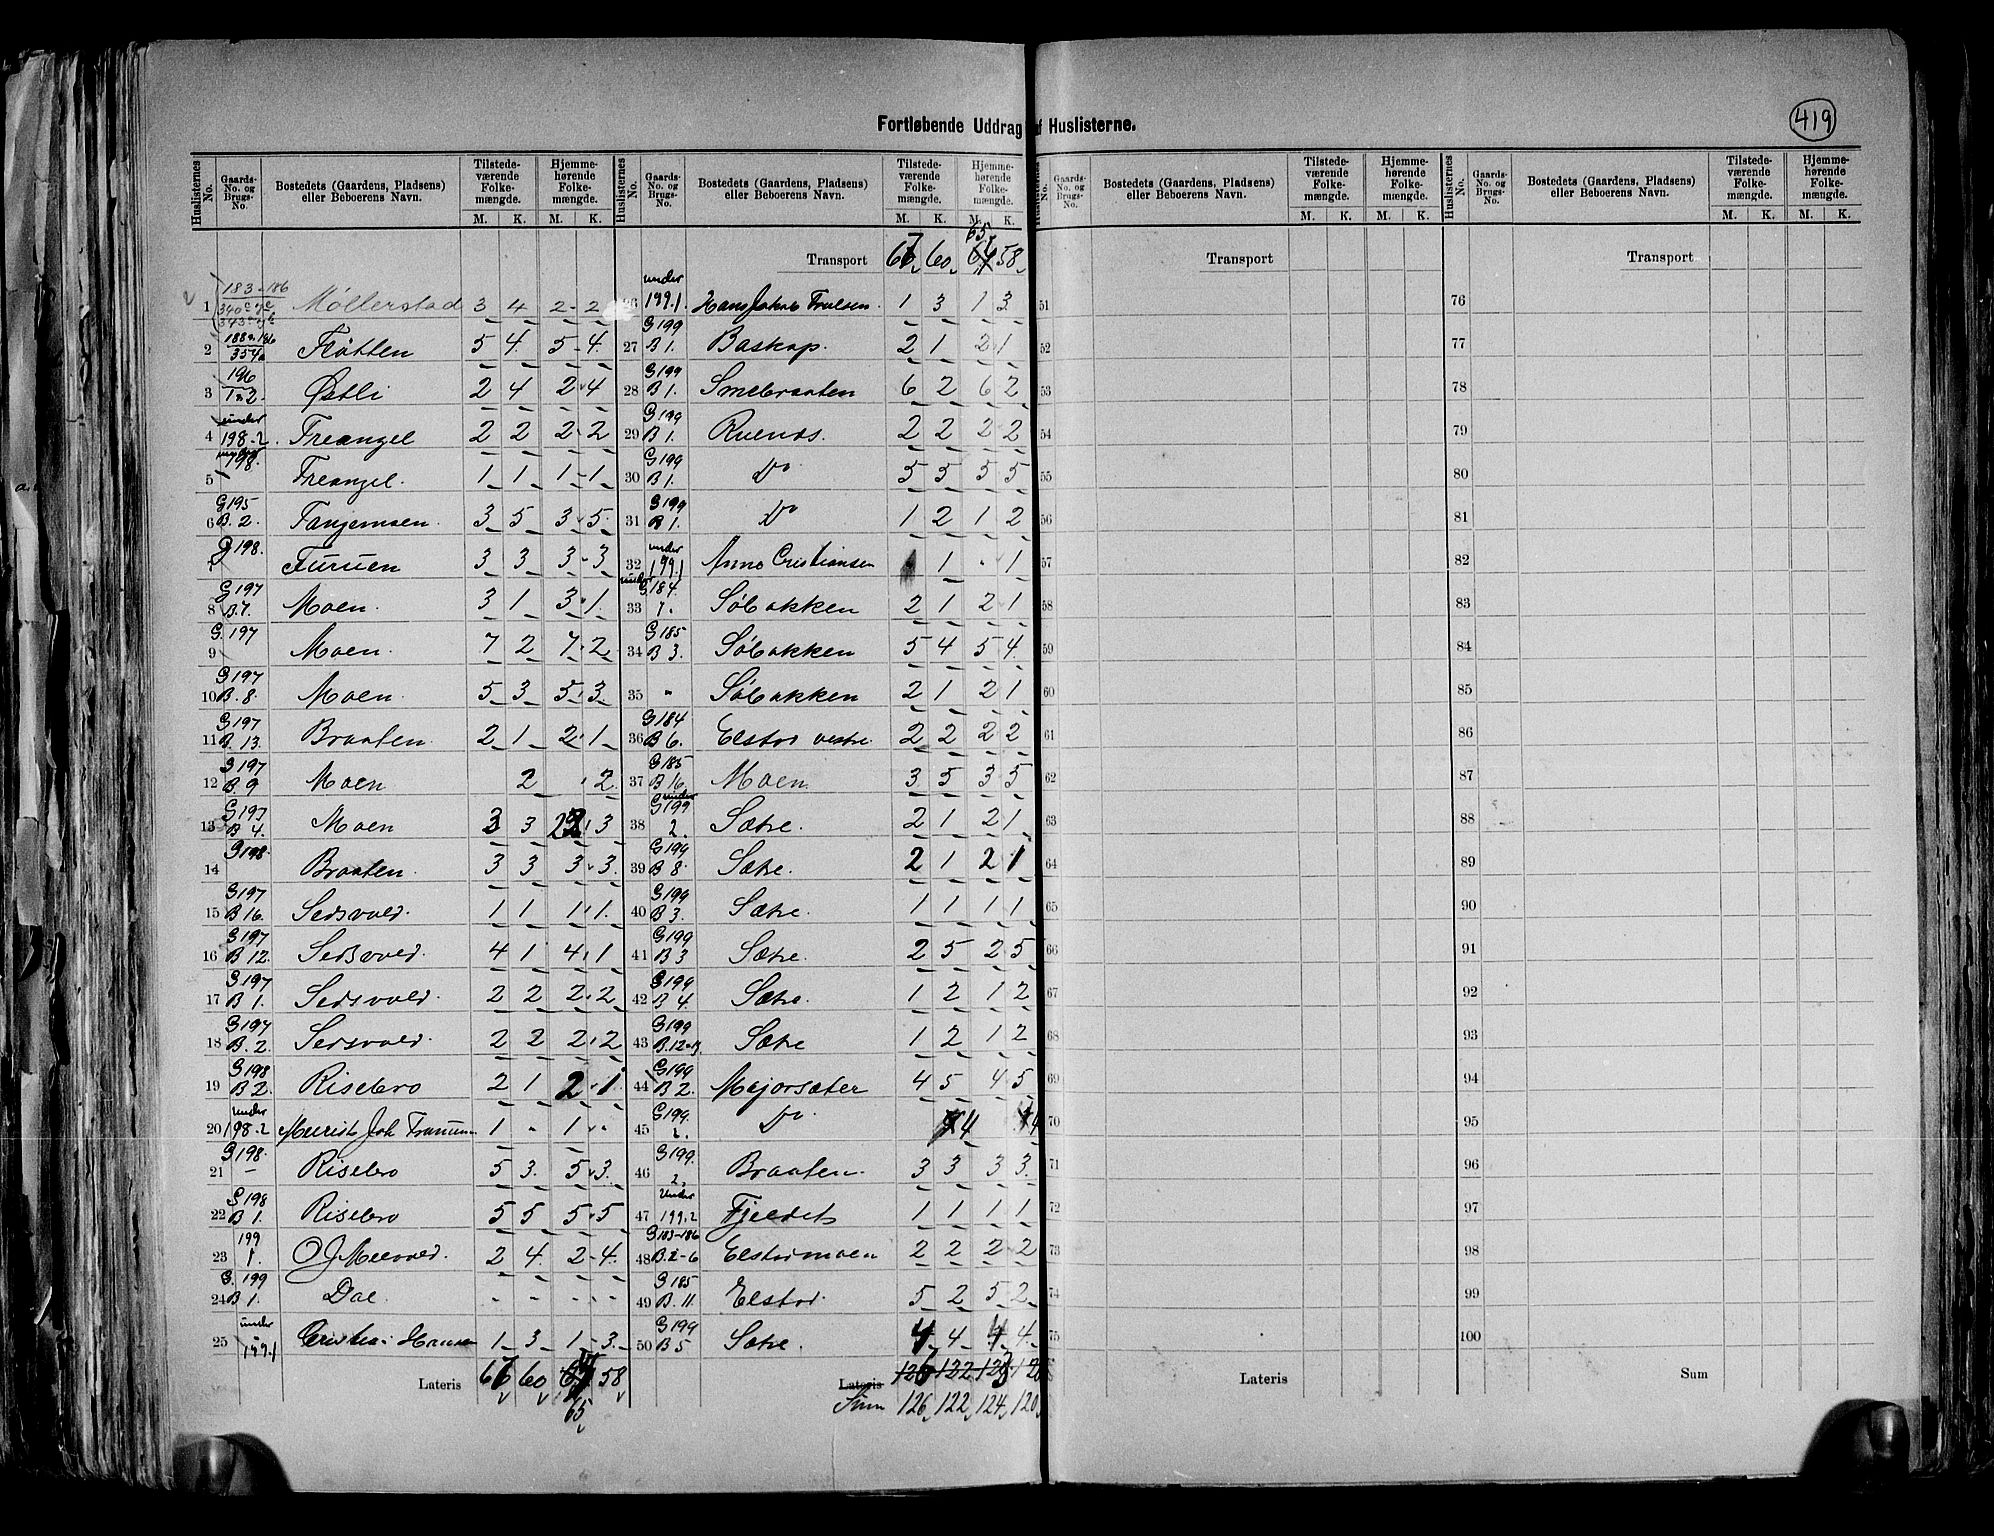 419
Fortløbende Uddrag af Huslisterne.
Huslisternes No. Gaards-No. og Brugs-No. Bostedets (Gaardens, Pladsens) eller Beboerens Navn. Tilstedeværende Folkemængde. M. K. Hjemmehørende Folkemængde. M. K.
1 183-186 Møllerstad 3 4 2 2
2 354 Flötten 5 4 5 4
3 196 Østli 2 4 2 4
4 under 198.2 Freangel 2 2 2 2
5 198. Freangel. 1 1 1 1
6 G195 B.2. Tangemoen. 3 5 3 5
G198. Furuen 3 3 3 3
8 G197 B.7. Moen. 3 1 3 1
9 G.197 Moen. 7 2 7 2
10 G197 B.8. Moen. 5 3 5 3
11 G197 B.13. Braaten. 2 1 2 1
12 G197 B.9 Moen 2 2
13 G197 B 4. Moen 3 3 3
14 G198. Braaten. 3 3 3 3
15 G197 B 16. Sedsvold. 1 1 1 1.
16 G197 B 12. Sedsvold. 4 1 4 1
17 G197 B 1. Sedsvold. 2 2 2 2
18 G197 B.2. Sedsvold. 2 2 2 2
19 G198 B 2. Risebro 2 1 2 1
20 under 198.2 Joh 1 - 1 -
21 G198. - Risebro 5 3. 5 3.
22 G198 B 1. Risebro 5 5 5 5
23 199 1. O J Meevold. 2 4 2 4
24 G.199 B 1. Dal - - - -
25 under 199.1 Cristian Hansen 1 3 1 3
Lateris 67 60 58
65
Transport 67 60 65 58
under 199.1 Hans Jakob Trulsen. 1 3 1 3
27 G199 B 1. Baskop. 2 1 2 1
28 G199 B 1. Smebraaten 6 2 6 2
29 G199 B 1. Ruends. 2 2 2 2
30 G199 B 1. Do 5 5 5 5
31 G199 B 1. Do 1 2 1 2
32 under 199.1 Anne Cristiansen 1 - 1
33 under G184 7. Söbakken 2 1 2 1
34 G185 B 3. Söbakken 5 4 5 4
35 " Söbakken 2 1 2 1
36 G184 B 6. Elstad vestre 2 2 2 2
37 G185 B 16. Moen 3 5 3 5
38 under G199 2. Sætre. 2 1 2 1
39 G199 B 8. Sætre. 2 1 2 1
40 G199 B 3. Sætre. 1 1 1 1
41 G199 B 3 Sætre. 2 5 2 5
42 G199 B 4. Sætre. 1 2 1 2
43 G199 B.12-13 Sætre 1 2 1 2
44 G199 B 2. Majorsæter 4 5 4 5
45 G199. 2. Do 4 4
46 G199. 2. Braaten. 3 3 3 3.
47 Under 199.2 Fjeldet 1 1 1 1
48 G183-186 B.2-6 Elstadmoen 2 2 2 2
49 G185 B. 11. Elstad. 5 2 5 2
50 G199 B 5 Sætre. 4 4 4 4
Lateris
Sum 126 122 124 120
Huslisternes No. Gaards-No. og Brugs-No. Bostedets (Gaardens, Pladsens) eller Beboerens Navn. Tilstedeværende Folkemængde. M. K. Hjemmehørende Folkemængde. M. K.
Transport
51
52
53
54
55
56
57
58
59
60
61
62
63
64
65
66
67
68
69
70
71
72
73
74
75
Lateris
Huslisternes No. Gaards-No. og Brugs-No. Bostedets (Gaardens, Pladsens) eller Beboerens Navn. Tilstedeværende Folkemængde. M. K. Hjemmehørende Folkemængde. M. K.
Transport
76
77
78
79
80
81
82
83
84
85
86
87
88
89
90
91
92
93
94
95
96
97
98
99
100
Sum